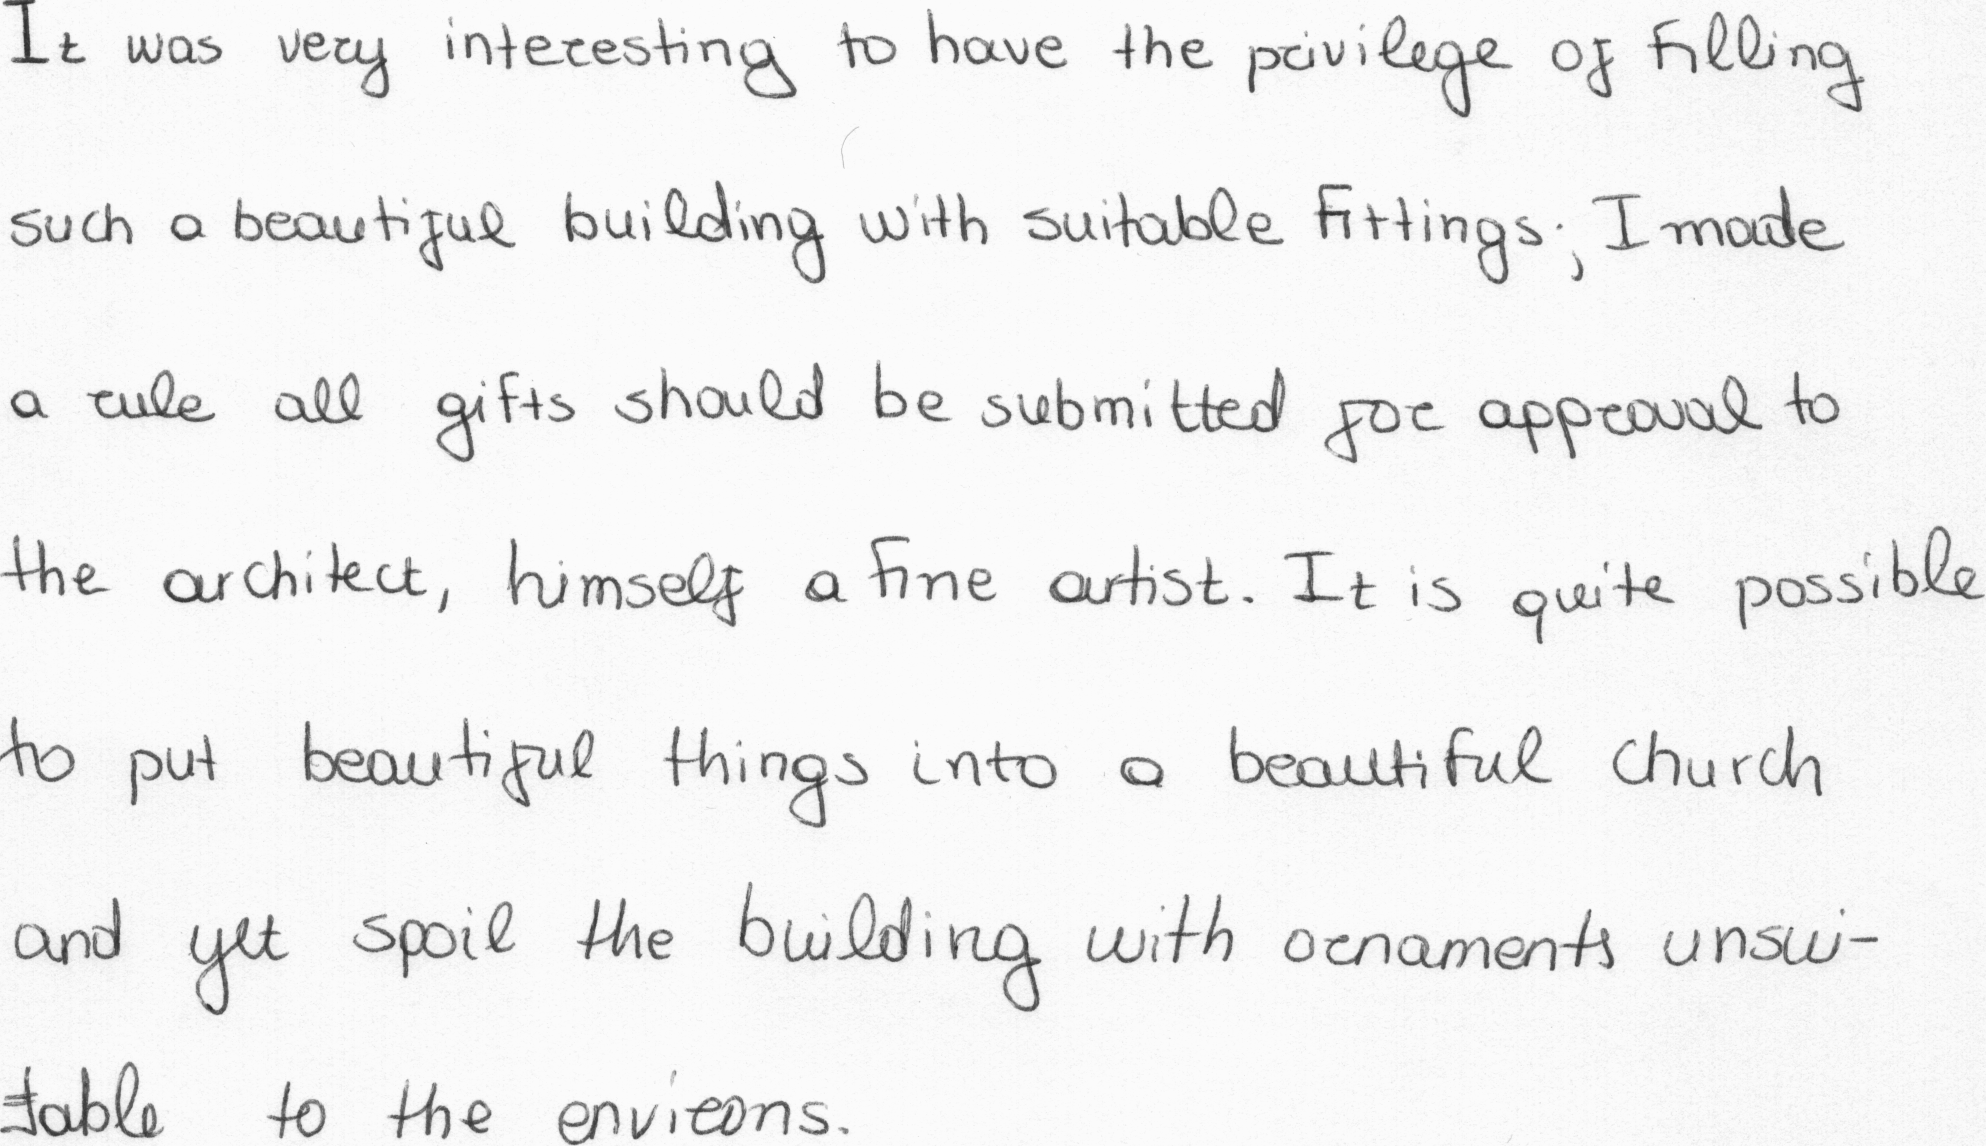 It was very interesting to have the privilege of filling
such a beautiful building with suitable fittings; I made
a rule all gifts should be submitted for approval to
the architect, himself a fine artist. It is quite possible
to put beautiful things into a beautiful church
and yet spoil the building with ornaments unsui-
table to the environs.